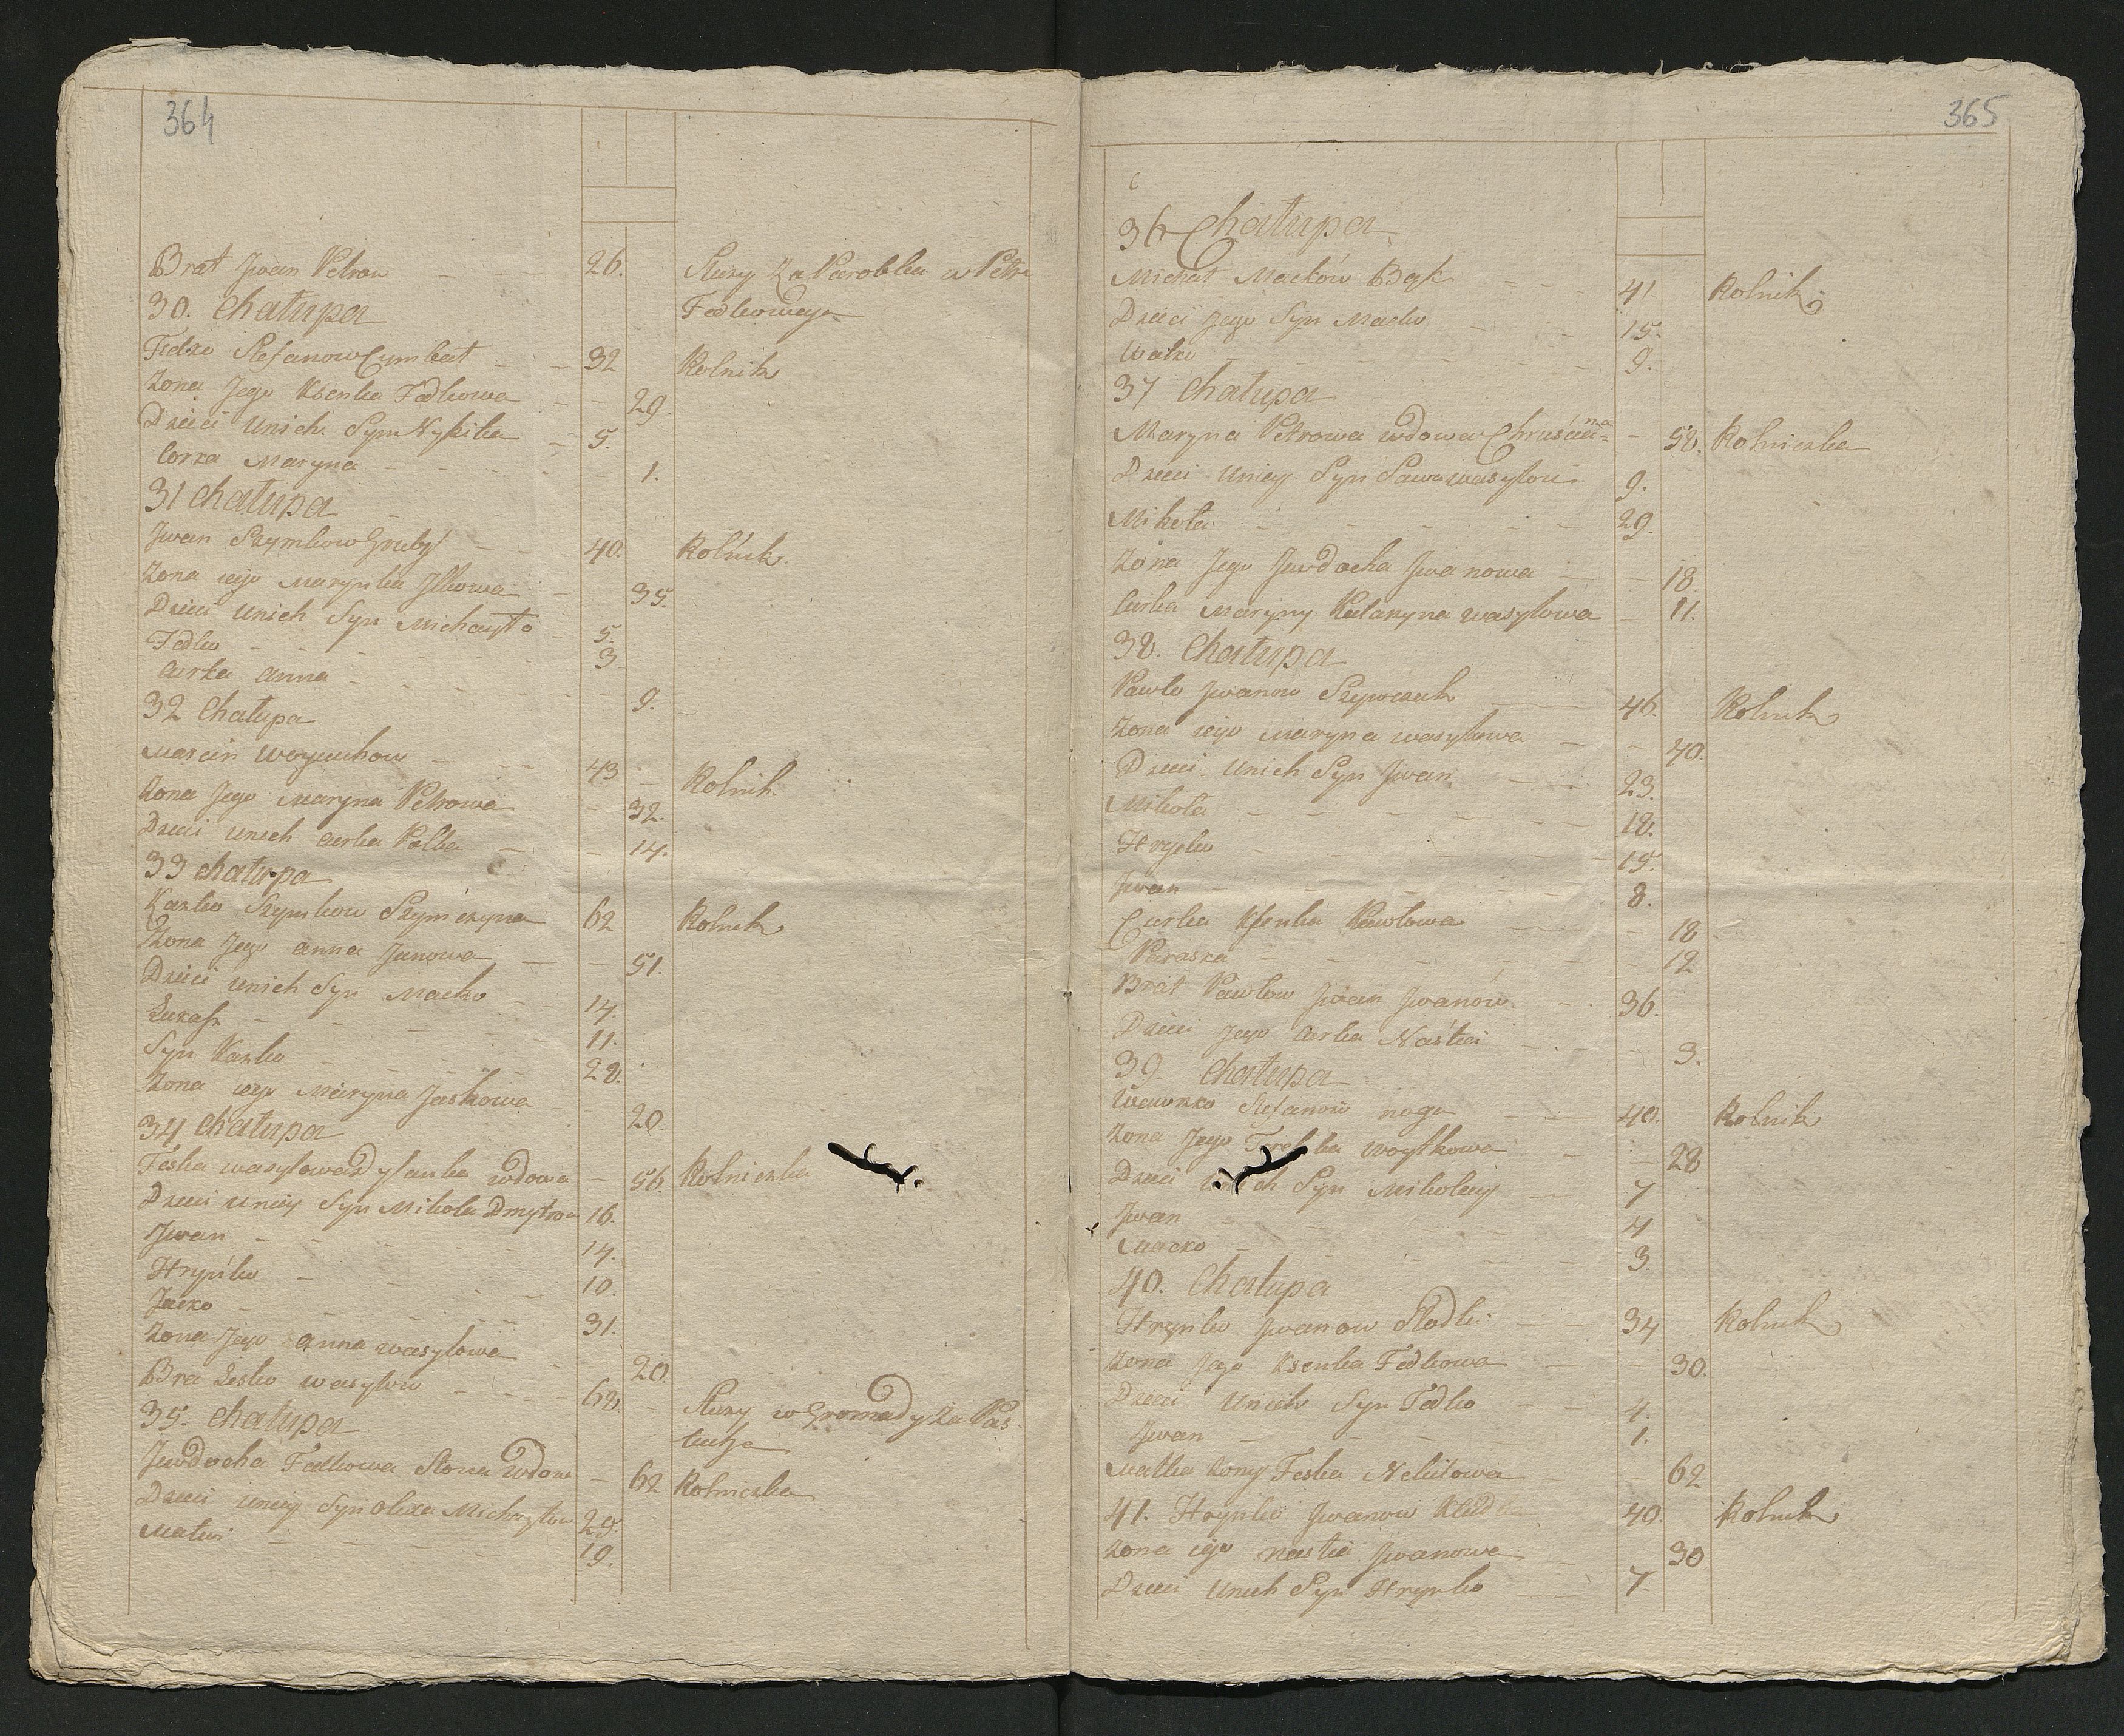 364
Brat Jwan Petrow — — 26. Słuzy Za Parobka u Petra
Fedkowego
30. Chałupa
Fedko Stefanow Cymbał — — 32 Rolnik
Zona Jego Ksenka Fedkowa — — 29.
Dzieci Unich Syn Nykita — 5
Corka Maryna — — — 1.
31 Chałupa
Jwan Szymkow Gruby — — 40. Rolnik.
Zona iego Marynka Jlkowa — 35.
Dzieci Unich Syn Michayło — 5.
Fedko — — — 3
Curka Anna — — — 9.
32 Chałupa
Marcin Woyciechow — — 43 Rolnik
Zona Jego Maryna Petrowa — 32.
Dzieci Unich Curka Polka — — 14.
33 Chałupa
Kazko Szymkow Szymczyna 62 Rolnik
Zona Jego Anna Janowa — — 51.
Dzieci Unich Syn Macko — 14.
Łukasz — — — 11.
Syn Kazko — — — 28.
Zona iego Maryna Jaskowa 20.
34 Chałupa
Feska Wasylowa wdowa — 56. Rolniczka
Dzieci Uniey Syn Mikola Dmytrow 16.
Jwan — — — 14.
Hryńko — — — 10.
Jacko — — — 31.
Zona Jego Anna Wasylowa — 20.
Bra Lesko Wasylow — — 68. — Słuzy w Gromady za Pas-
tucha
35. Chałupa
Jwdocha Fedkowa Słona Wdowa — 62 Rolniczka
Dzieci Uniey Syn Olexa Michayłow 29.
Matwi — — — 19.
365
36 Chałupa
Michał Maćków Bąk — — 41. Rolnik
Dzieci Jego Syn Macko — — 15.
Wasko — — — 9.
37 Chałupa
Maryna Petrowa wdowa — 58. Rolniczka
Dzieci Uniey Syn Sawa Wasylow 9.
Mikoła — — — 29.
Zona Jego Jewdocha Jwanowa — — 18.
Curka Maryny Katarzyna Wasylowa — 11.
38. Chałupa
Pawło Jwanow Szewczuk — 46. Rolnik
Zona iego Maryna Wasylowa — — 40.
Dzieci Unich Syn Jwan — — 23.
Mikoła — — — 18.
Hryćko — — — 15.
Jwan — — — 8.
Curka Ksenka Pawlowa — — 18
Paraska — — — 12
Brat Pawlow Jwan Jwanow — 36.
Dzieci Jego Curka Nastia — — 3.
39. Chałupa
Wawrzko Stefanow noga — — 40. Rolnik
Zona Jego Woytkowa — — 28
Dzieci Syn Mikołay — 7
Jwan — — — 4
Macko — — — 3.
40. Chałupa
Hryńko Jwanow Słodki — — 34 Rolnik
Zona Jego Ksenka Fedkowa — — 30.
Dzieci Unich Syn Fedko — — 4.
Jwan — — — 1.
Matka Zony Feska Nekitowa — 62
41. Hryńko Jwanow 40. Rolnik
Zona iego Nastia Jwanowa — 30
Dzieci Unich Syn Hryńko — 7